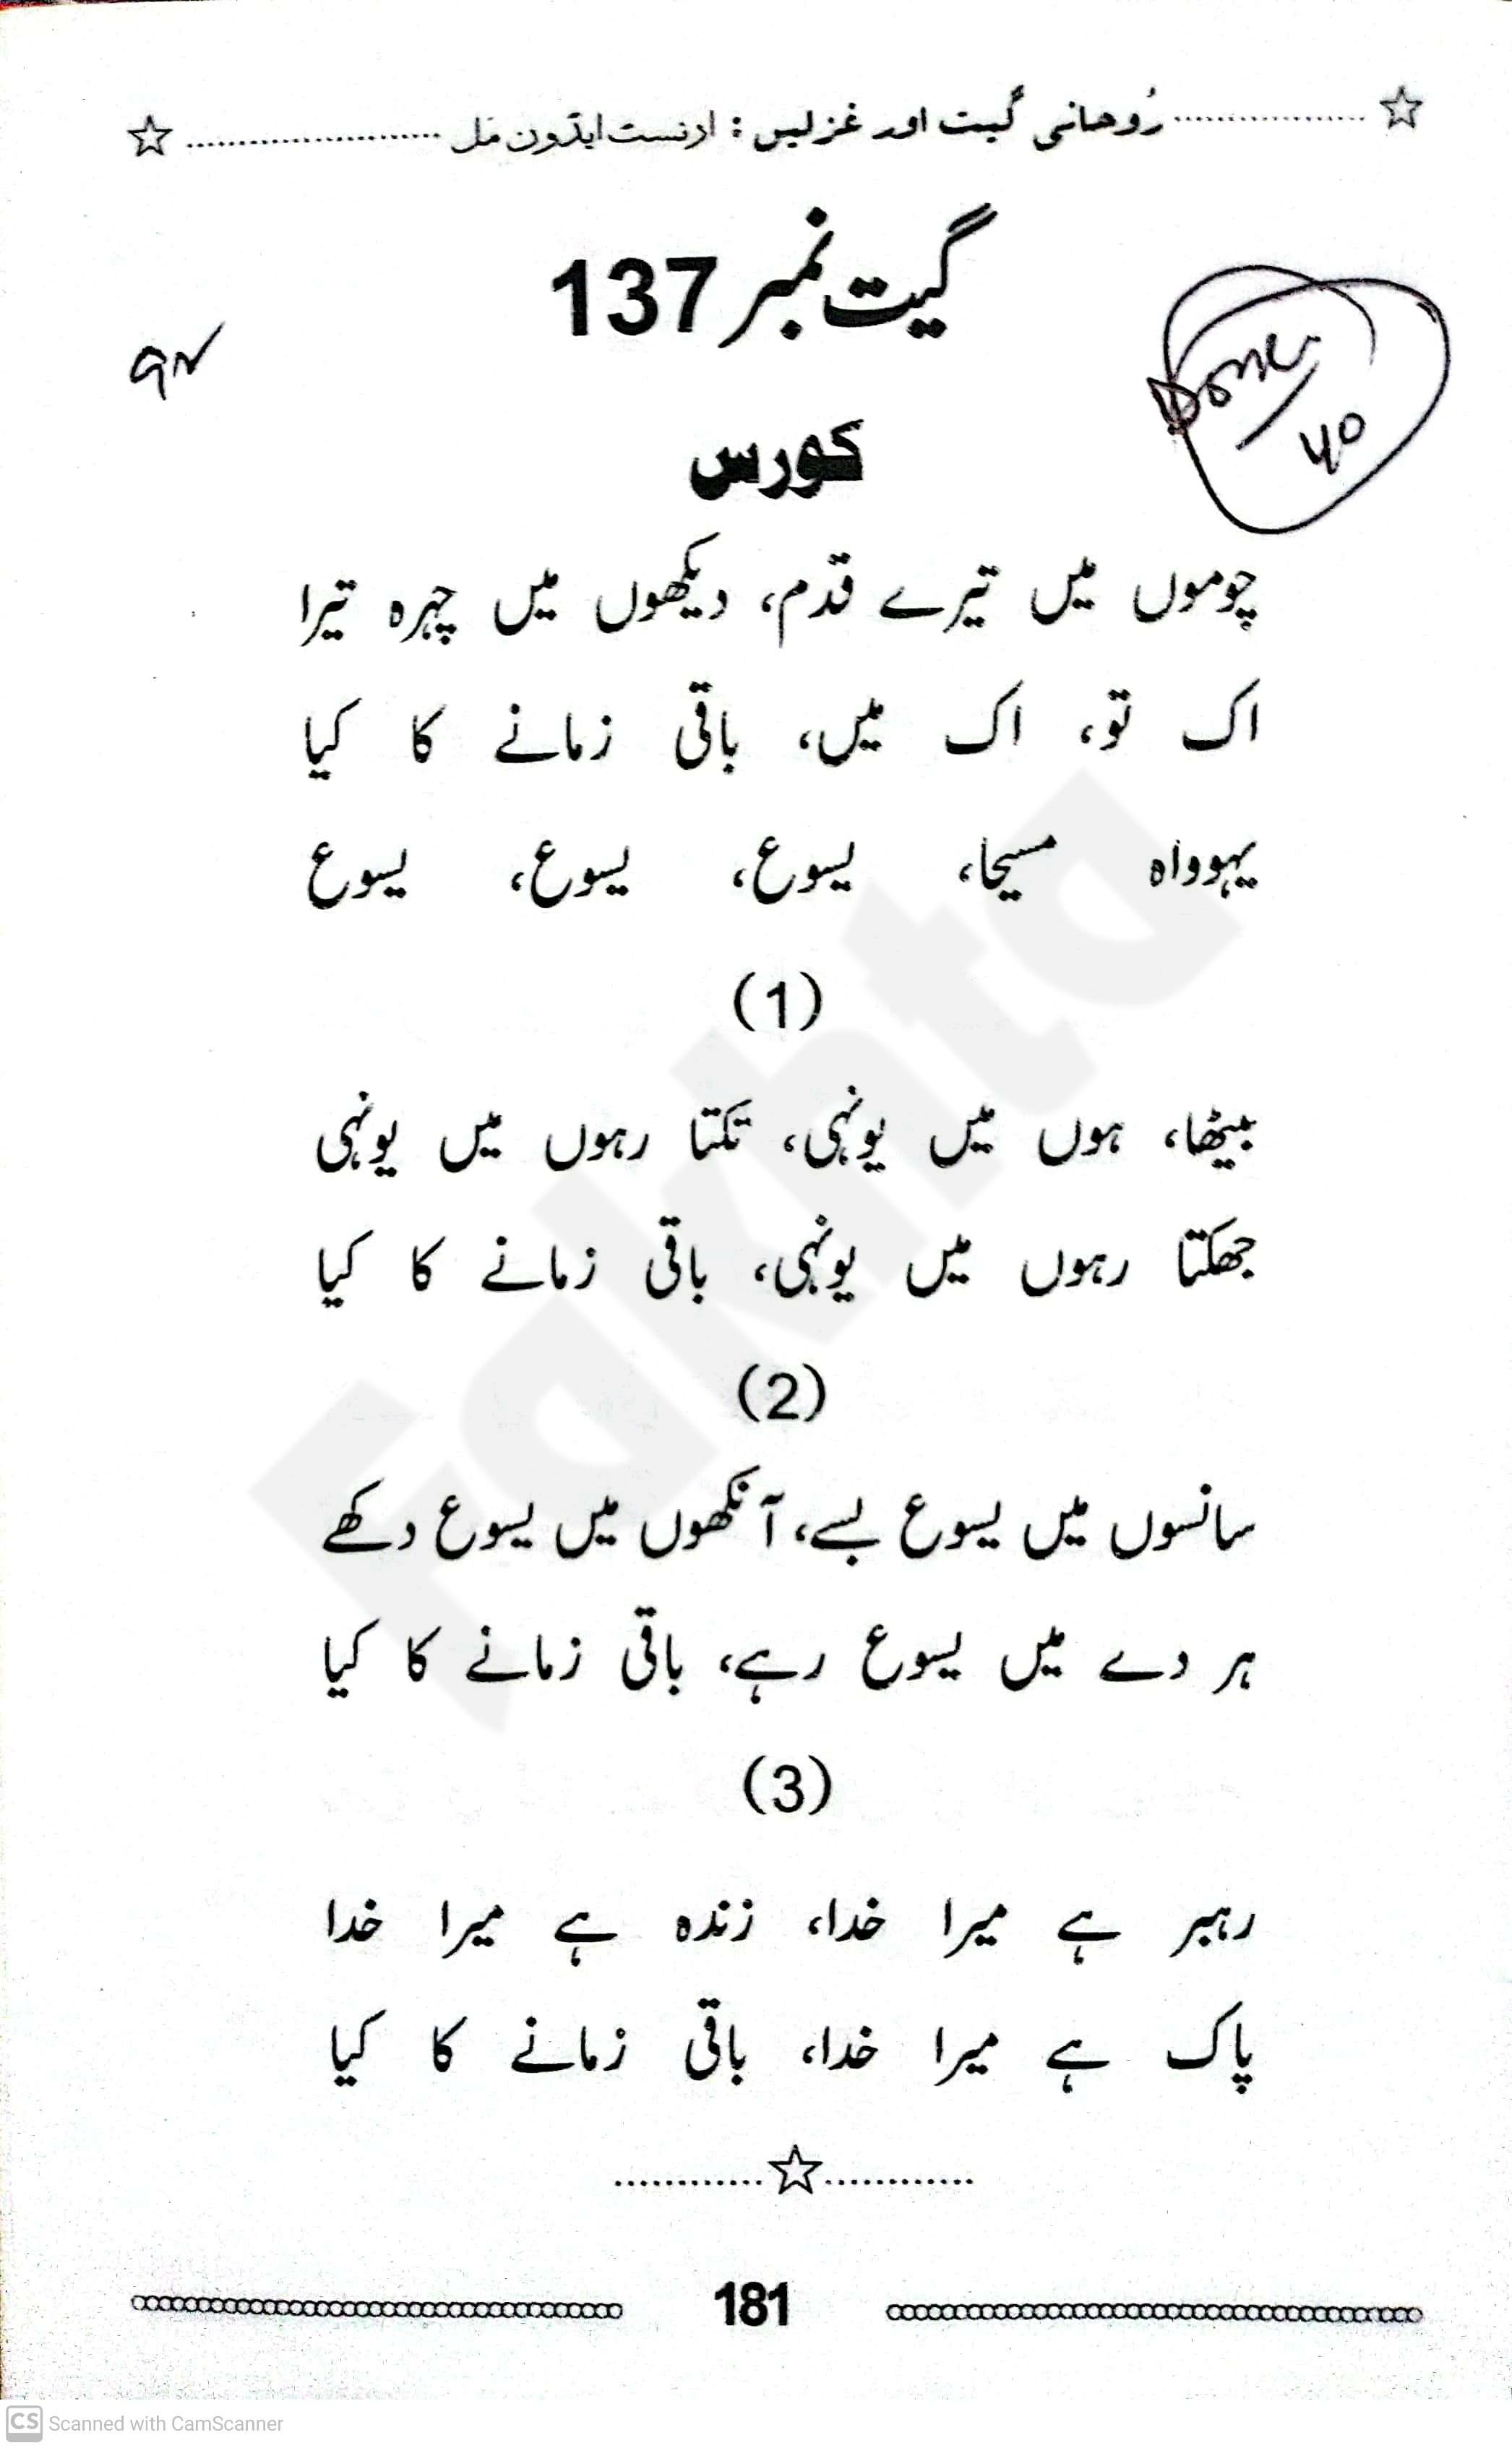 رُوحانی گیت اور غزلیں : ارنسٹ ایڈون مَل
گیت نمبر 137
Done
کورس
چوموں میں تیرے قدم، دیکھوں میں چہرہ تیرا
اک تو، اک میں، باقی زمانے کا کیا
یہوواہ مسیحا، یسوع، یسوع، یسوع
(1)
بیٹھا، ہوں میں یونہی، تکتا رہوں میں یونہی
جھکتا رہوں میں یونہی، باقی زمانے کا کیا
(2)
سانسوں میں یسوع بسے، آنکھوں میں یسوع دکھے
ہر دے میں یسوع رہے، باقی زمانے کا کیا
(3)
رہبر ہے میرا خدا، زندہ ہے میرا خدا
پاک ہے میرا خدا، باقی زمانے کا کیا
181
Fakhta
CS Scanned with CamScanner